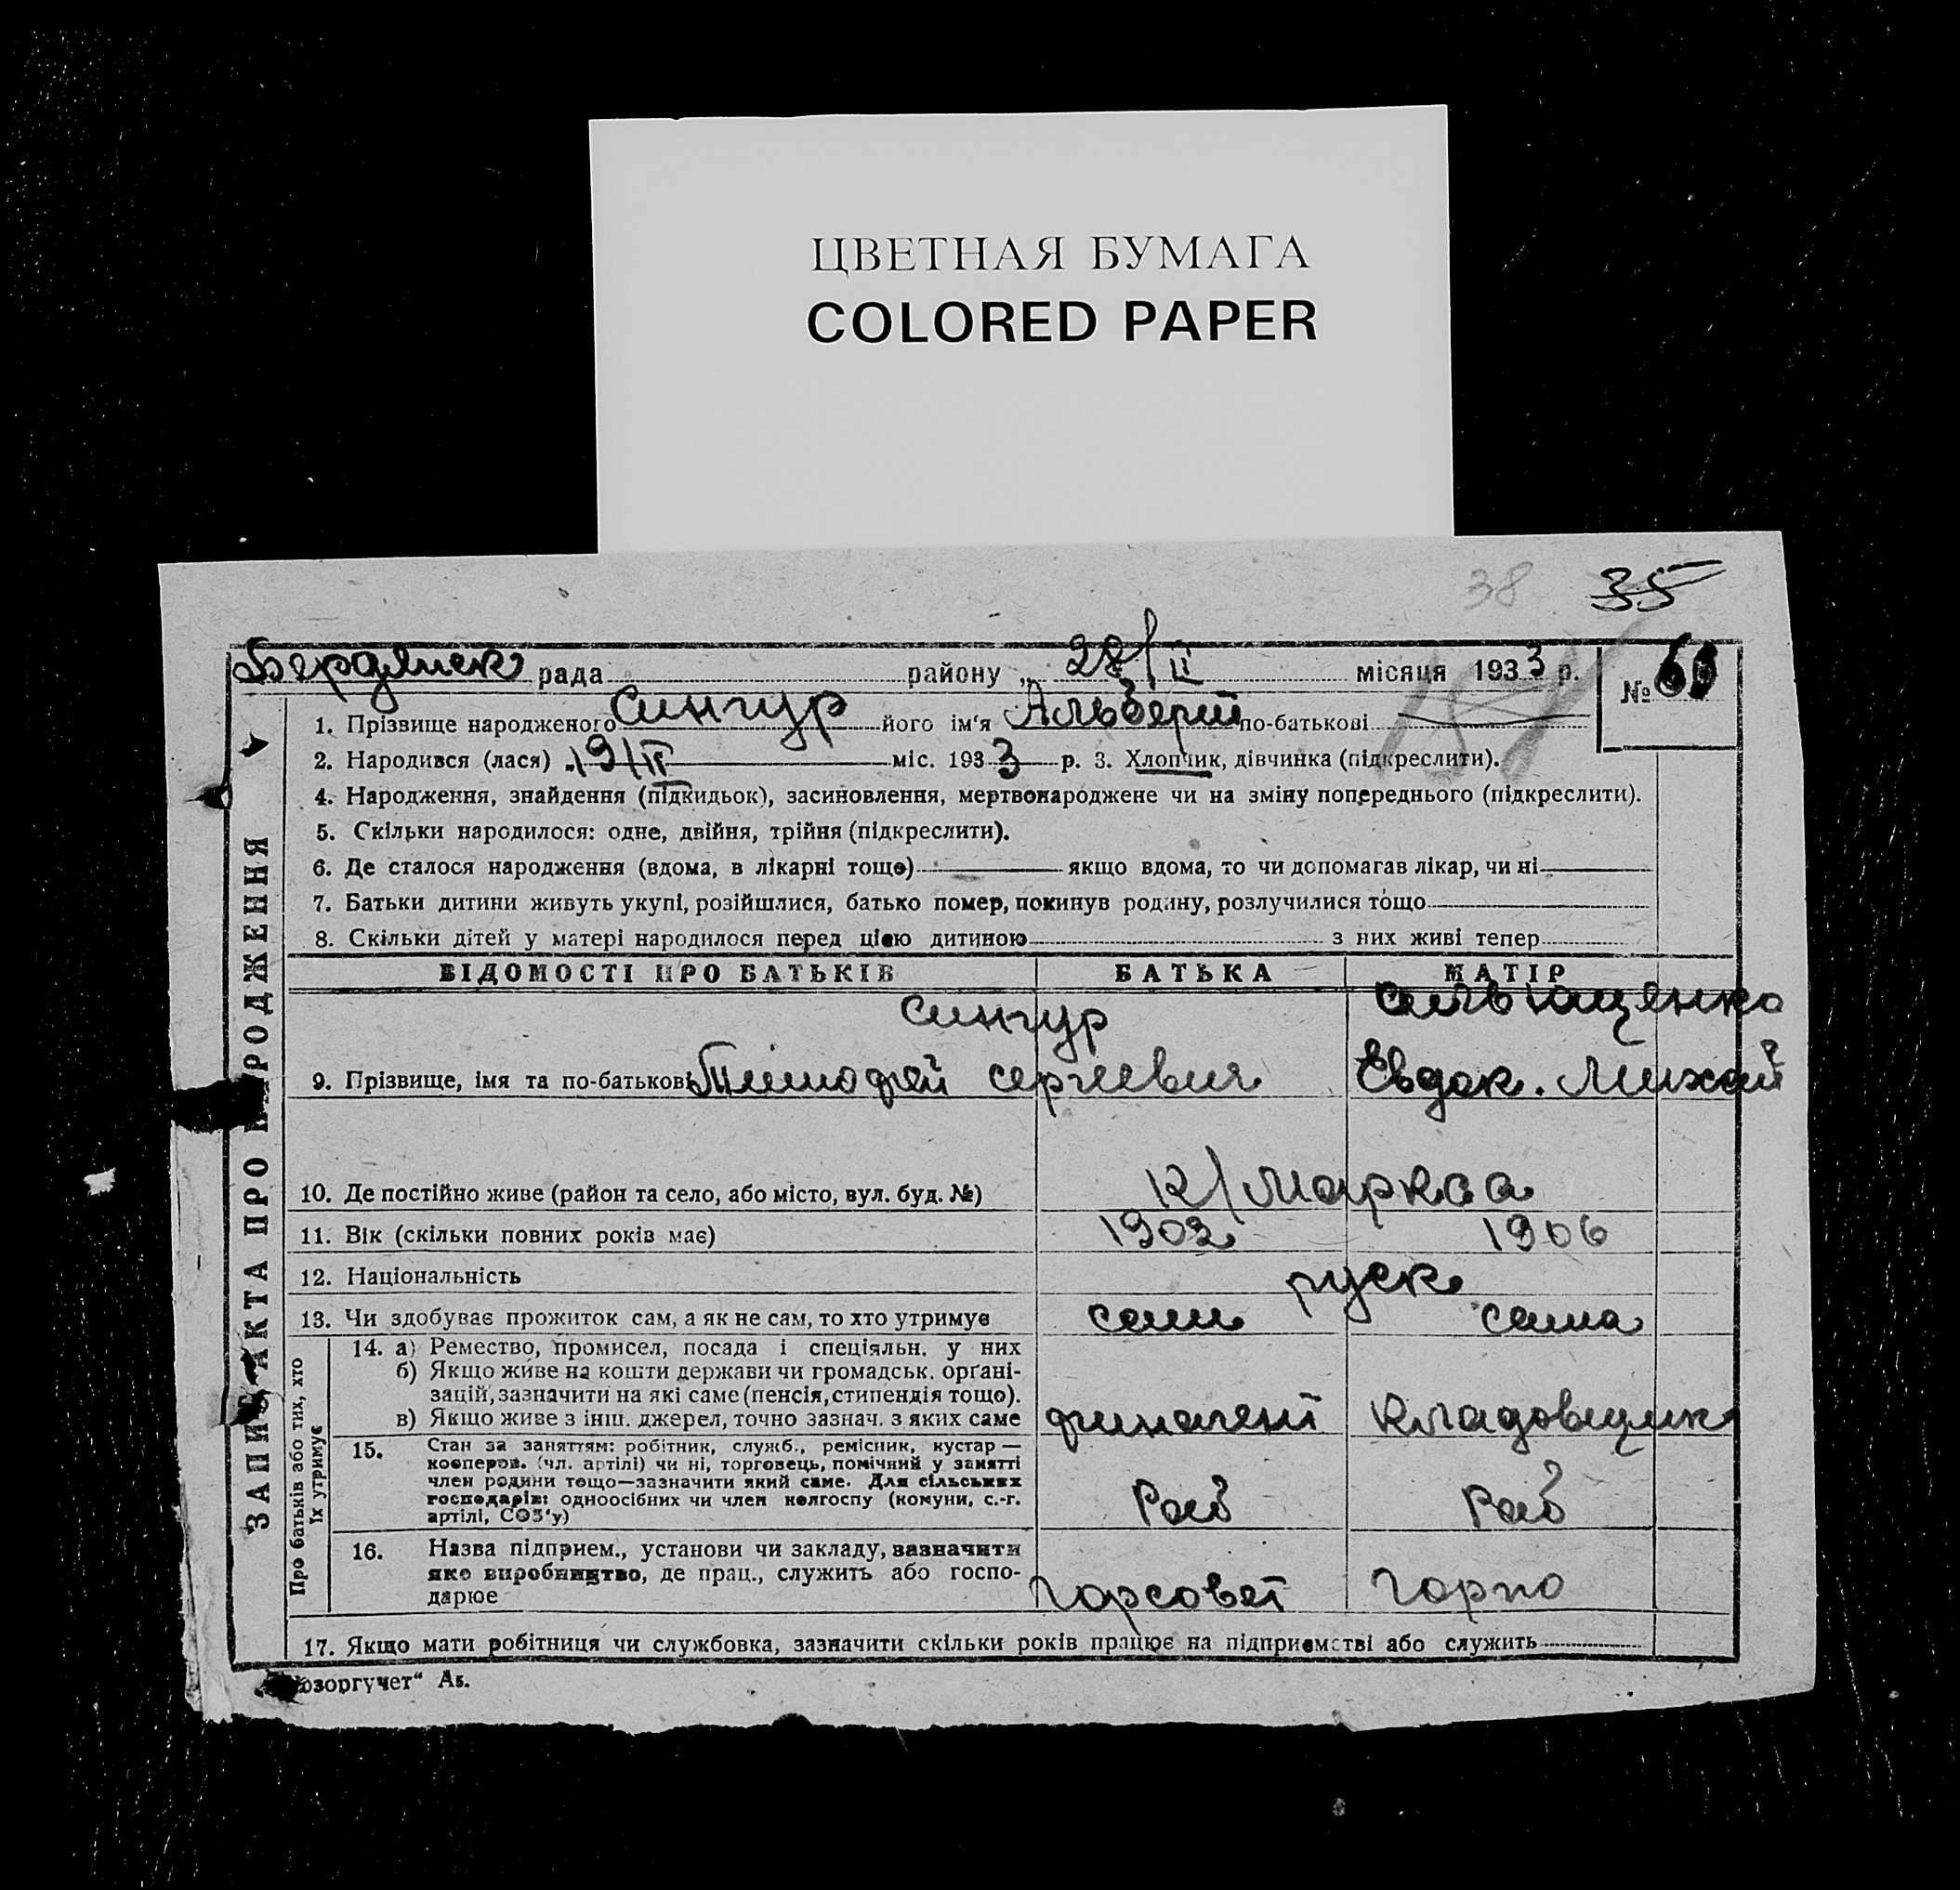 ЦВЕТНАЯ БУМАГА
COLORED PAPER
38 35
Бердянск рада районуу „ 28/II місяця 1933 р. №
1. Прізвище народженого Сингур його ім'я Альберт по-батькові
2. Народився (лася) „19/II міс. 1933 р. 3. Хлопчик, дівчинка (підкреслити).
4. Народження, знайдення (підкидьок), засиновлення, мертвонароджене чи на зміну попереднього (підкреслити).
5. Скільки народилося: одне, двійня, трійня (підкреслити).
6. Де сталося народження (вдома, в лікарні тощо) якщо вдома, то чи допомагав лікар, чи ні
7. Батьки дитини живуть укупі, розійшлися, батько помер, покинув родину, розлучилися тощо
8. Скільки дітей у матері народилося перед цією дитиною з них живі тепер
ЗАПИС АКТА ПРО НАРОДЖЕННЯ
ВІДОМОСТІ ПРО БАТЬКІВ БАТЬКА МАТІР
Сингур
9. Прізвище, імя та по-батькові Тимофей Сергеевич Евдок. Михай
10. Де постійно живе (район та село, або місто, вул. буд. №) К/Маркса
11. Вік (скільки повних років має) 1902 1906
12. Національність руск
13. Чи здобуває прожиток сам, а як не сам, то хто утримує сам сама
Про батьків або тих, хто їх утримує
14. а) Ремество, промисел, посада і спеціяльн. у них
б) Якщо живе на кошти держави чи громадськ. орґані-
зацій, зазначити на які саме (пенсія, стипендія тощо).
в) Якщо живе з інш. джерел, точно зазнач. з яких саме финагент Кладовщик
15. Стан за заняттям: робітник, служб., ремісник, кустар —
кооперов. (чл. артілі) чи ні, торговець, помічний у занятті
член родини тощо—зазначити який саме. Для сільських
господарів: одноосібних чи член колгоспу (комуни, с.-г.
артілі, СОЗ'у) Раб Раб
16. Назва підприєм., установи чи закладу, зазначити
яке виробництво, де прац., служить або госпо-
дарює Горсовет Горпо
17. Якщо мати робітниця чи службовка, зазначити скільки років працює на підприємстві або служить
юзоргучет“ А5.